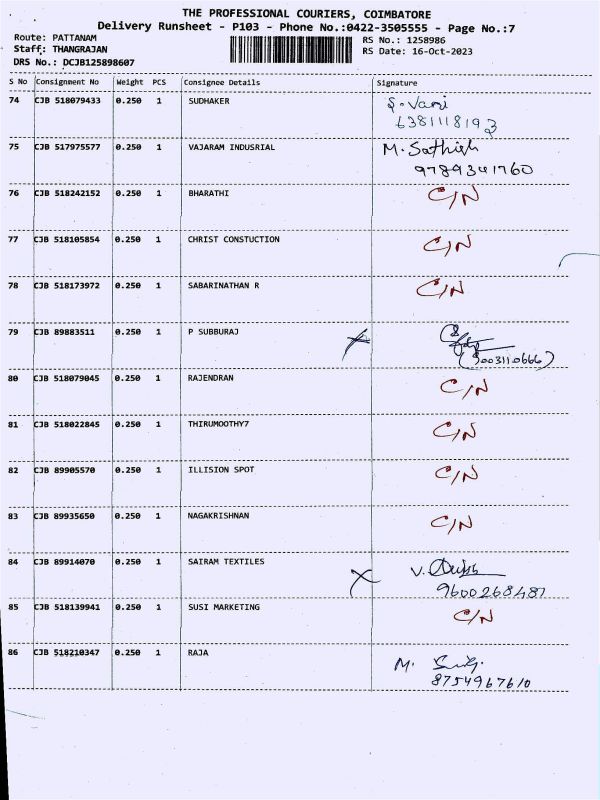 THE PROFESSIONAL COURIERS, COIMBATORE
Delivery Runsheet - P103 - Phone No.:0422-3505555 - Page No.:7
Route: PATTANAM
RS No.: 1258986
Staff: THANGRAJAN
RS Date: 16-Oct-2023
DRS No.: DCJB125898607
S No Consignment No Weight PCS Consignee Details Signature
74 CJB 518079433 0.250 1 SUDHAKER S. Vani
6381118193
75 CJB 517975577 0.250 1 VAJARAM INDUSRIAL M. Sathish
9789341760
76 CJB 518242152 0.250 1 BHARATHI C/N
77 CJB 518105854 0.250 1 CHRIST CONSTUCTION C/N
78 CJB 518173972 0.250 1 SABARINATHAN R C/N
79 CJB 89883511 0.250 1 P SUBBURAJ
80 CJB 518079045 0.250 1 RAJENDRAN C/N
81 CJB 518022845 0.250 1 THIRUMOOTHY7 C/N
82 CJB 89905570 0.250 1 ILLISION SPOT C/N
83 CJB 89935650 0.250 1 NAGAKRISHNAN C/N
84 CJB 89914070 0.250 1 SAIRAM TEXTILES V.
9600268487
85 CJB 518139941 0.250 1 SUSI MARKETING C/N
86 CJB 518210347 0.250 1 RAJA M.
8754967610